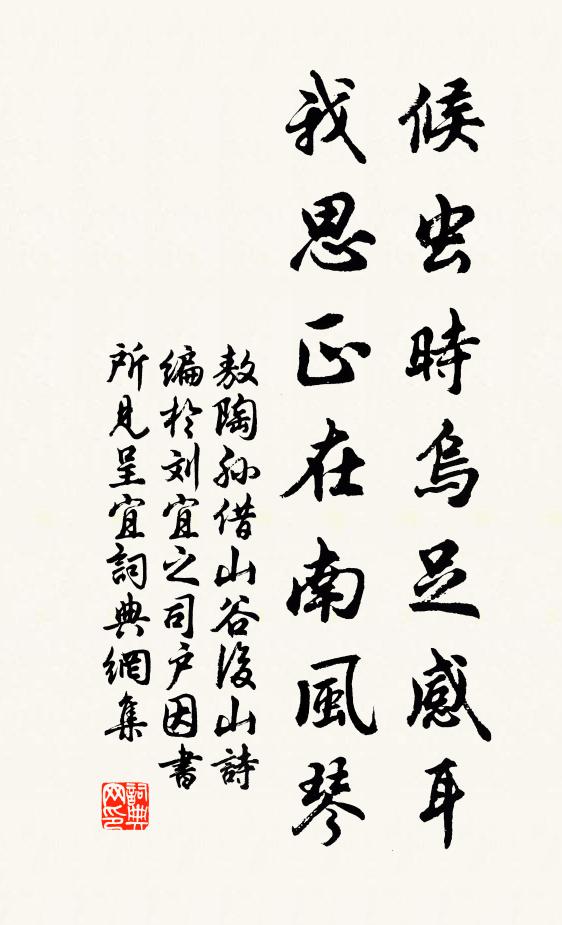 候虫時鳥足感耳
我思正在南風琴
敖陶孙借山谷後山詩
编於刘宜之司户因書
所見呈宜詞典網集
詞典网印